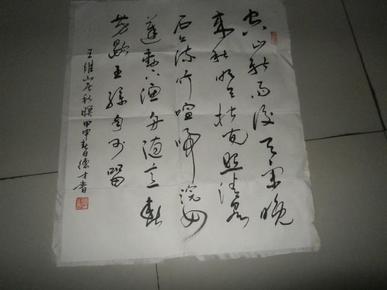 空山新雨後天氣晚
来秋明月松间照清泉
石上流竹喧歸浣女
蓮動下漁舟隨意春
芳歇王孫自可留
王維山居秋暝甲申春日書